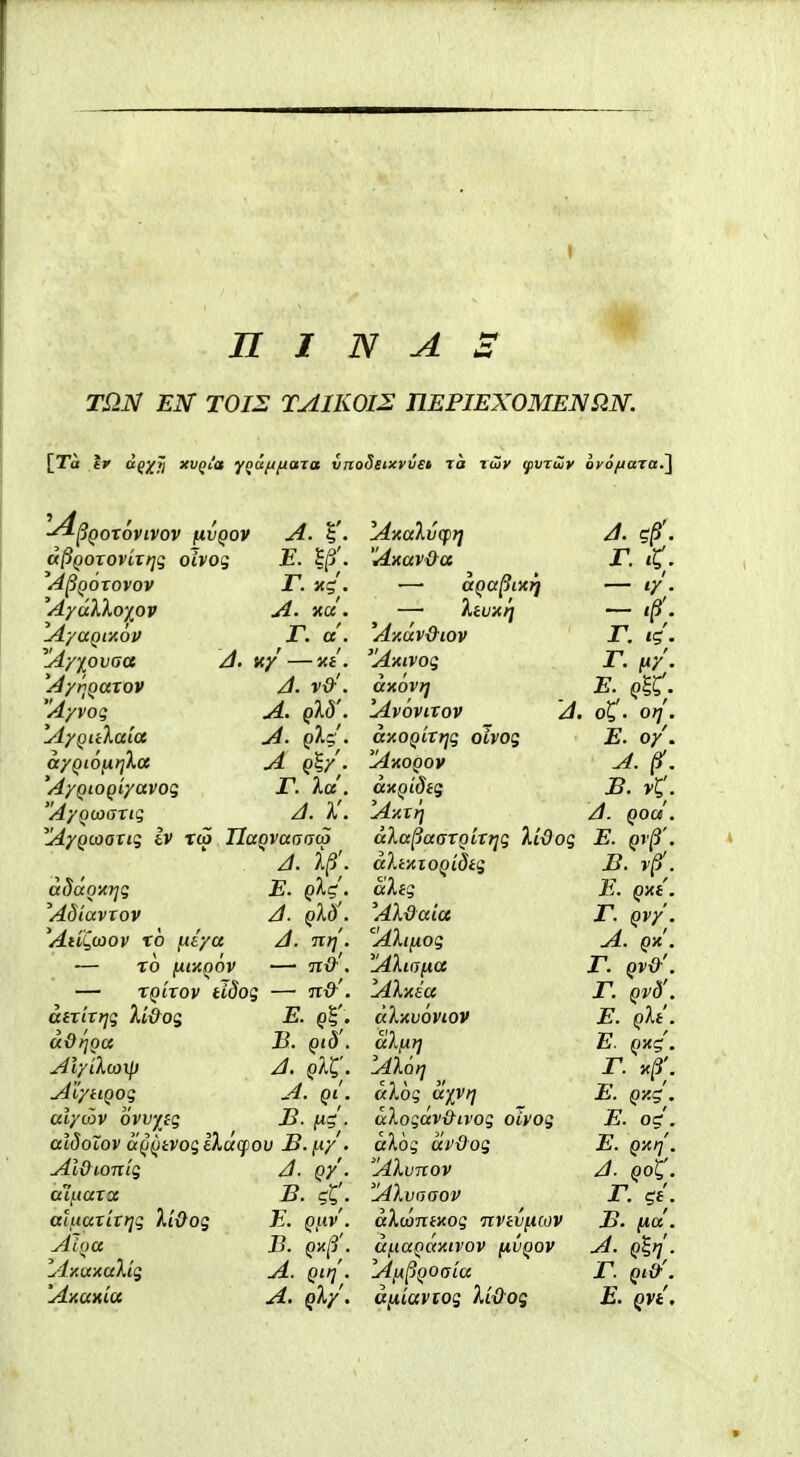 ΠΙΝΑΞ
ΤΩΝ ΕΝ ΤΟΙΣ ΥΛΙΚΟΙΣ ΠΕΡΙΕΧΟΜΕΝΩΝ.
[Τὰ ἐν ἀρχῇ κυρία γράμματα ὑποδεικνύει τὰ τῶν φυτῶν ὀνόματα.]
Ἀβροτόνινον μύρον Α. ξ΄.
ἀβροτονίτης οἶνος Ε. ξβ΄.
Ἀβρότονον Γ. κς΄.
Ἀγάλλοχον Α. κα΄.
Ἀγαρικόν Γ. α΄.
Ἄγχουσα Δ. κγ΄ — κε΄.
Ἀγήρατον Δ. νθ΄.
Ἄγνος Α. ρλδ΄.
Ἀγριελαία Α. ρλς΄.
ἀγριόμηλα Α ρξγ΄.
Ἀγριορίγανος Γ. λα΄.
Ἄγρωστις Δ. λ΄.
Ἄγρωστις ἐν τῷ Παρνασσῷ
Δ. λβ΄.
ἀδάρκης Ε. ρλς΄.
Ἀδίαντον Δ. ρλδ΄.
Ἀείζωον τὸ μέγα Δ. πη΄.
— τὸ μικρόν — πθ΄.
— τρίτον εἶδος — πθ΄.
ἀετίτης λίθος Ε. ρξ΄.
ἀθήρα Β. ριδ΄.
Αἰγίλωψ Δ. ρλζ΄.
Αἴγειρος Α. ρι΄.
αἰγῶν ὄνυχες Β. μς΄.
αἰδοῖον ἄῤῥενος ἐλάφου Β. μγ΄.
Αἰθιοπίς Δ. ργ΄.
αἵματα Β. ςζ΄.
αἱματίτης λίθος Ε. ρμν΄.
Αἶρα Β. ρκβ΄.
Ἀκακαλίς Α. ριη΄.
Ἀκακία Α. ρλγ΄.
Ἀκαλύφη Δ. ςβ΄.
Ἄκανθα Γ. ιζ΄.
— ἀραβική — ιγ΄.
— λευκή — ιβ΄.
Ἀκάνθιον Γ. ις΄.
Ἄκινος Γ. μγ΄.
ἀκόνη Ε. ρξζ΄.
Ἀνόνιτον Δ. οζ΄. οη΄.
ἀκορίτης οἶνος Ε. ογ΄.
Ἄκορον Α. β΄.
ἀκρίδες Β. νζ΄.
Ἀκτή Δ. ροα΄.
ἀλαβαστρίτης λίθος Ε. ρνβ΄.
ἀλεκτορίδες Β. νβ΄.
ἅλες Ε. ρκε΄.
Ἀλθαία Γ. ρνγ΄.
Ἅλιμος Α. ρκ΄.
Ἄλισμα Γ. ρνθ΄.
Ἀλκέα Γ. ρνδ΄.
ἀλκυόνιον Ε. ρλε΄.
ἅλμη Ε. ρκς΄.
Ἀλόη Γ. κβ΄.
ἁλὸς ἄχνη Ε. ρκς΄.
ἁλοςάνθινος οἶνος Ε. ος΄.
ἁλὸς ἄνθος Ε. ρκη΄.
Ἄλυπον Δ. ροζ΄.
Ἄλυσσον Γ. ςε΄.
ἀλώπεκος πνεύμων Β. μα΄.
ἀμαράκινον μύρον Α. ρξη΄.
Ἀμβροσία Γ. ριθ΄.
ἀμίαντος λίθος Ε. ρνε΄.